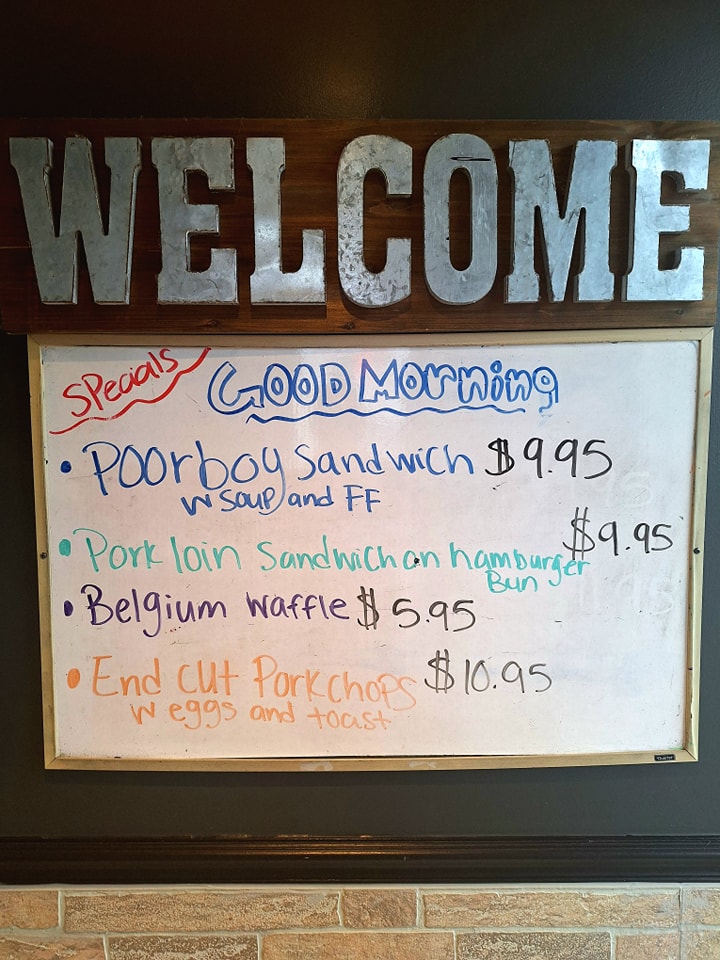 WELCOME
Specials
GOOD Morning
• Poorboy Sandwich $9.95
w soup and FF
• Pork loin Sandwich on hamburger $9.95
Bun
• Belgium waffle $5.95
• End cut Porkchops $10.95
w eggs and toast